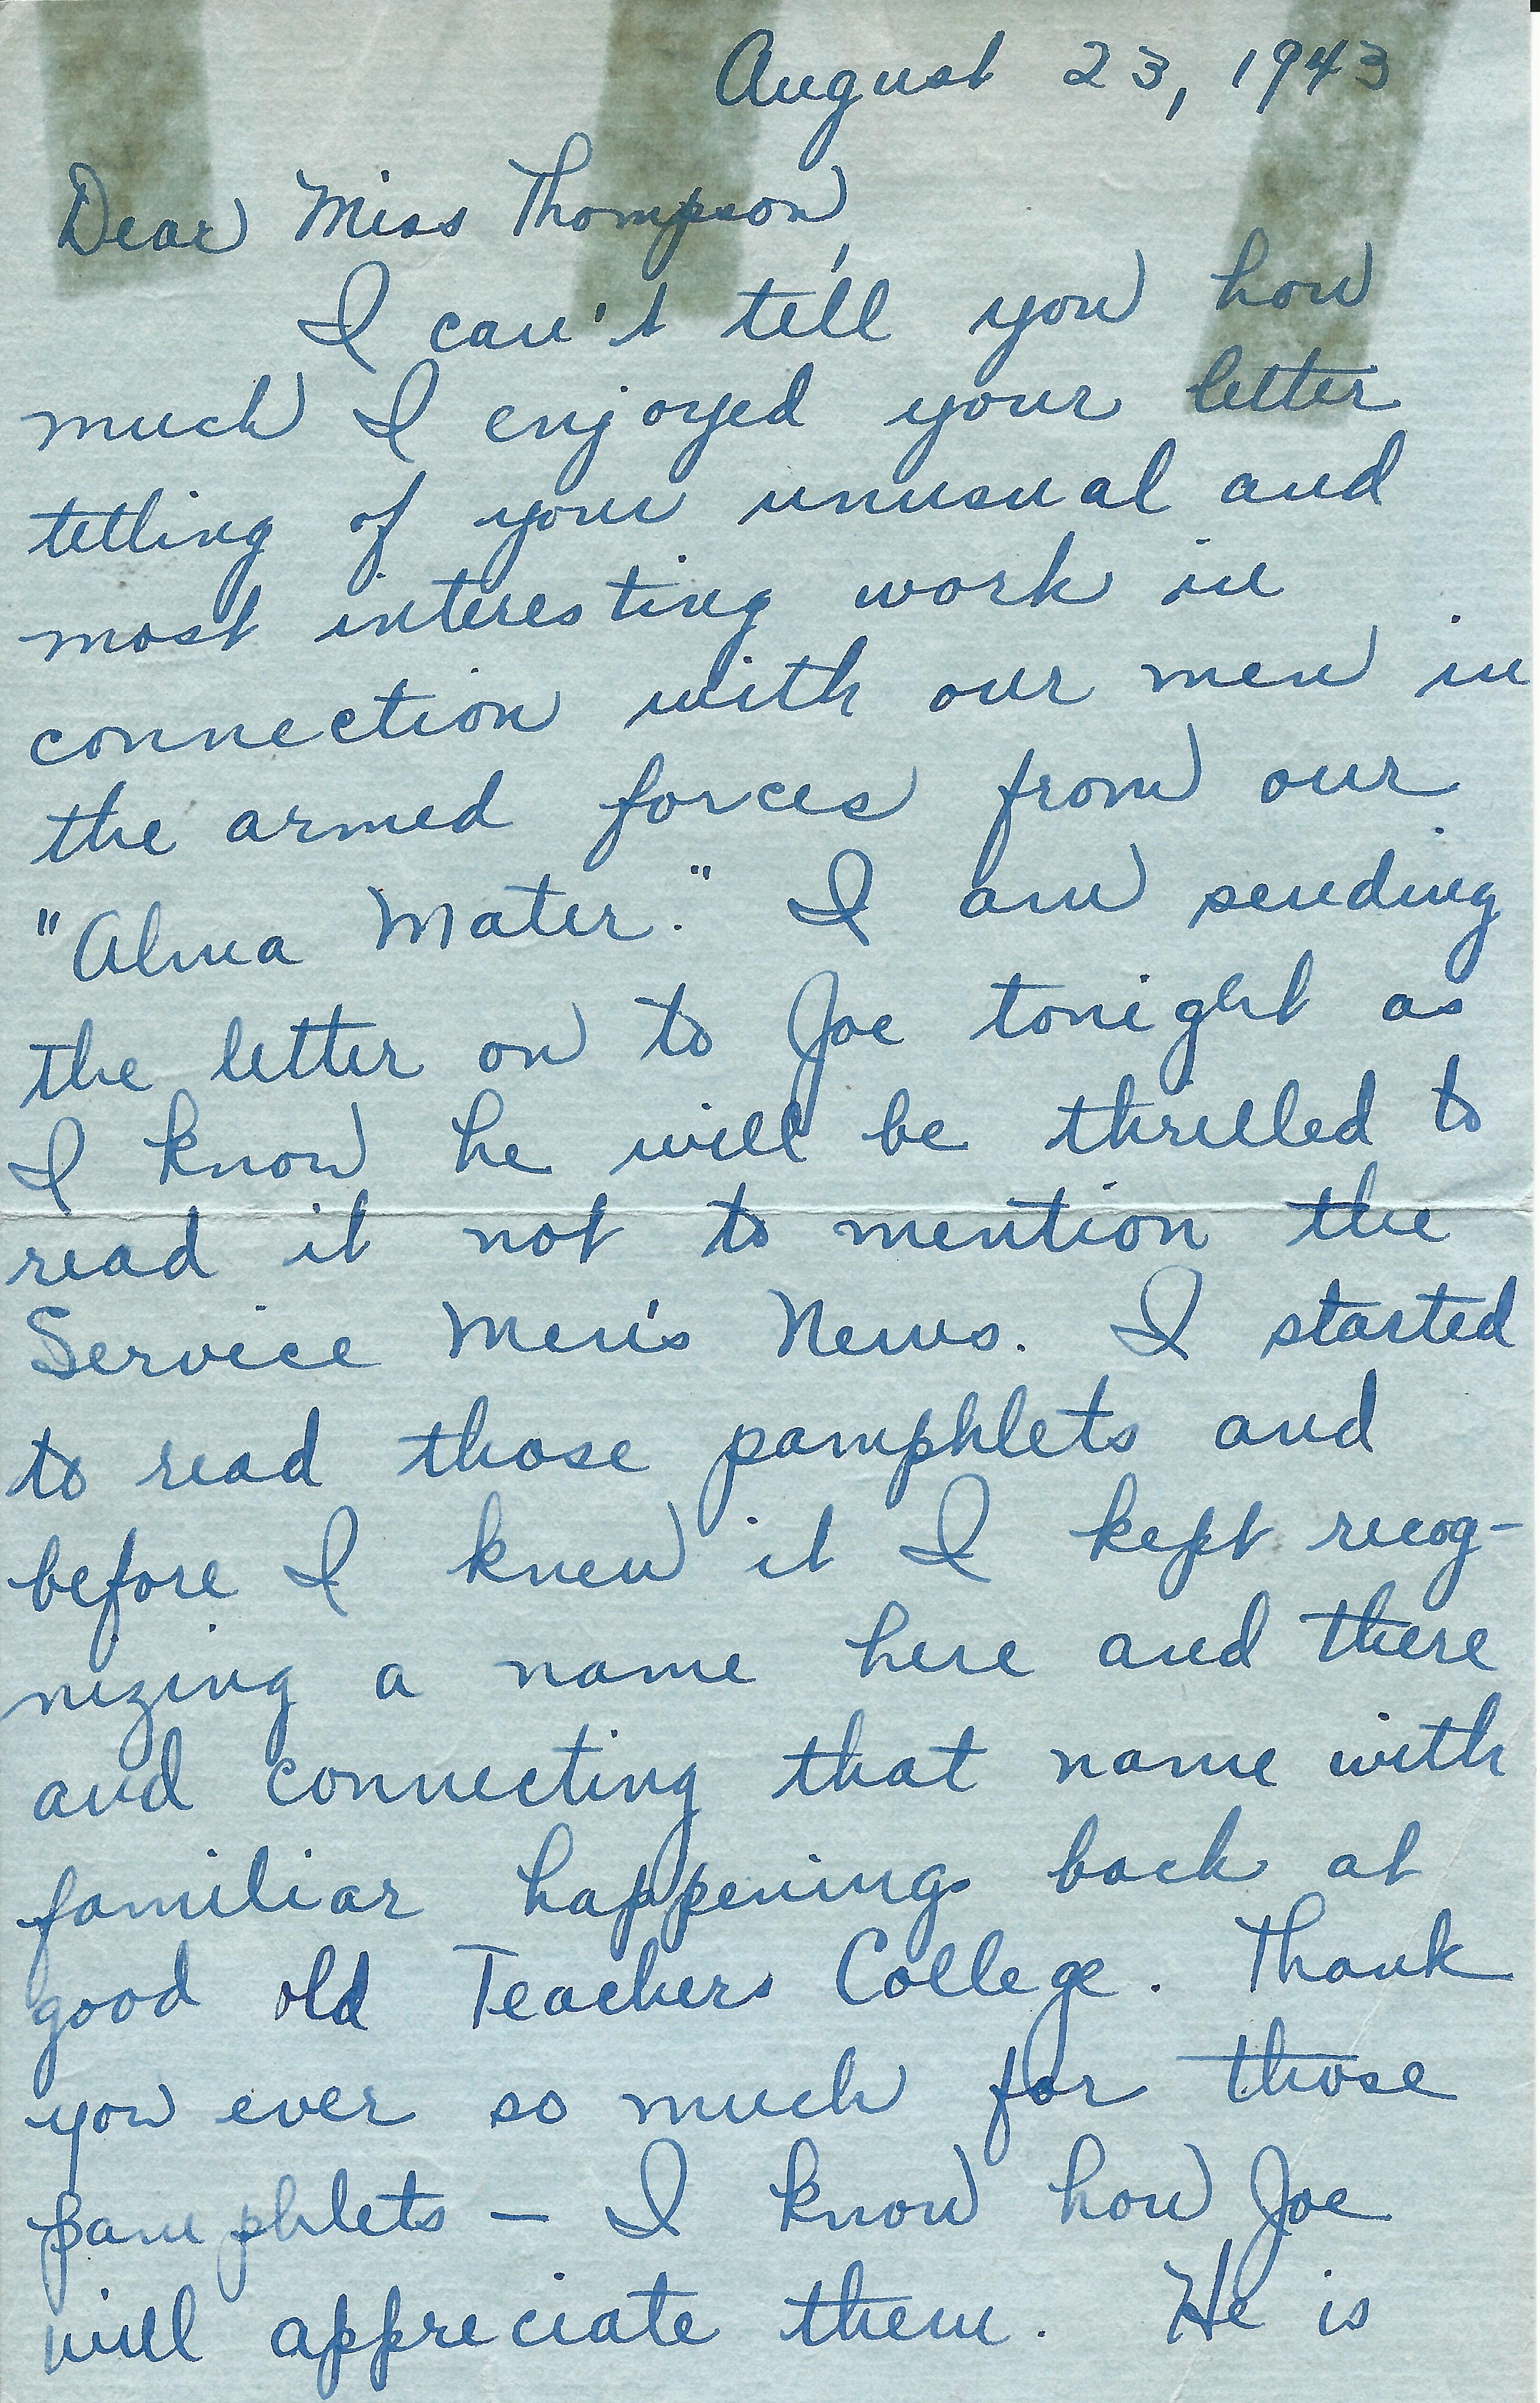 August 23, 1943
Dear Miss Thompson,
I can't tell you how
much I enjoyed your letter
telling of your unusual and
most interesting work in
connection with our men in
the armed forces from our
"Alma Mater." I am sending
the letter on to Joe tonight as
I know he will be thrilled to
read it not to mention the
Service Men's News. I started
to read those pamphlets and
before I knew it I kept recog-
nizing a name here and there
and connecting that name with
familiar happenings back at
good old Teachers College. Thank
you ever so much for those
pamphlets - I know how Joe
will appreciate them. He is